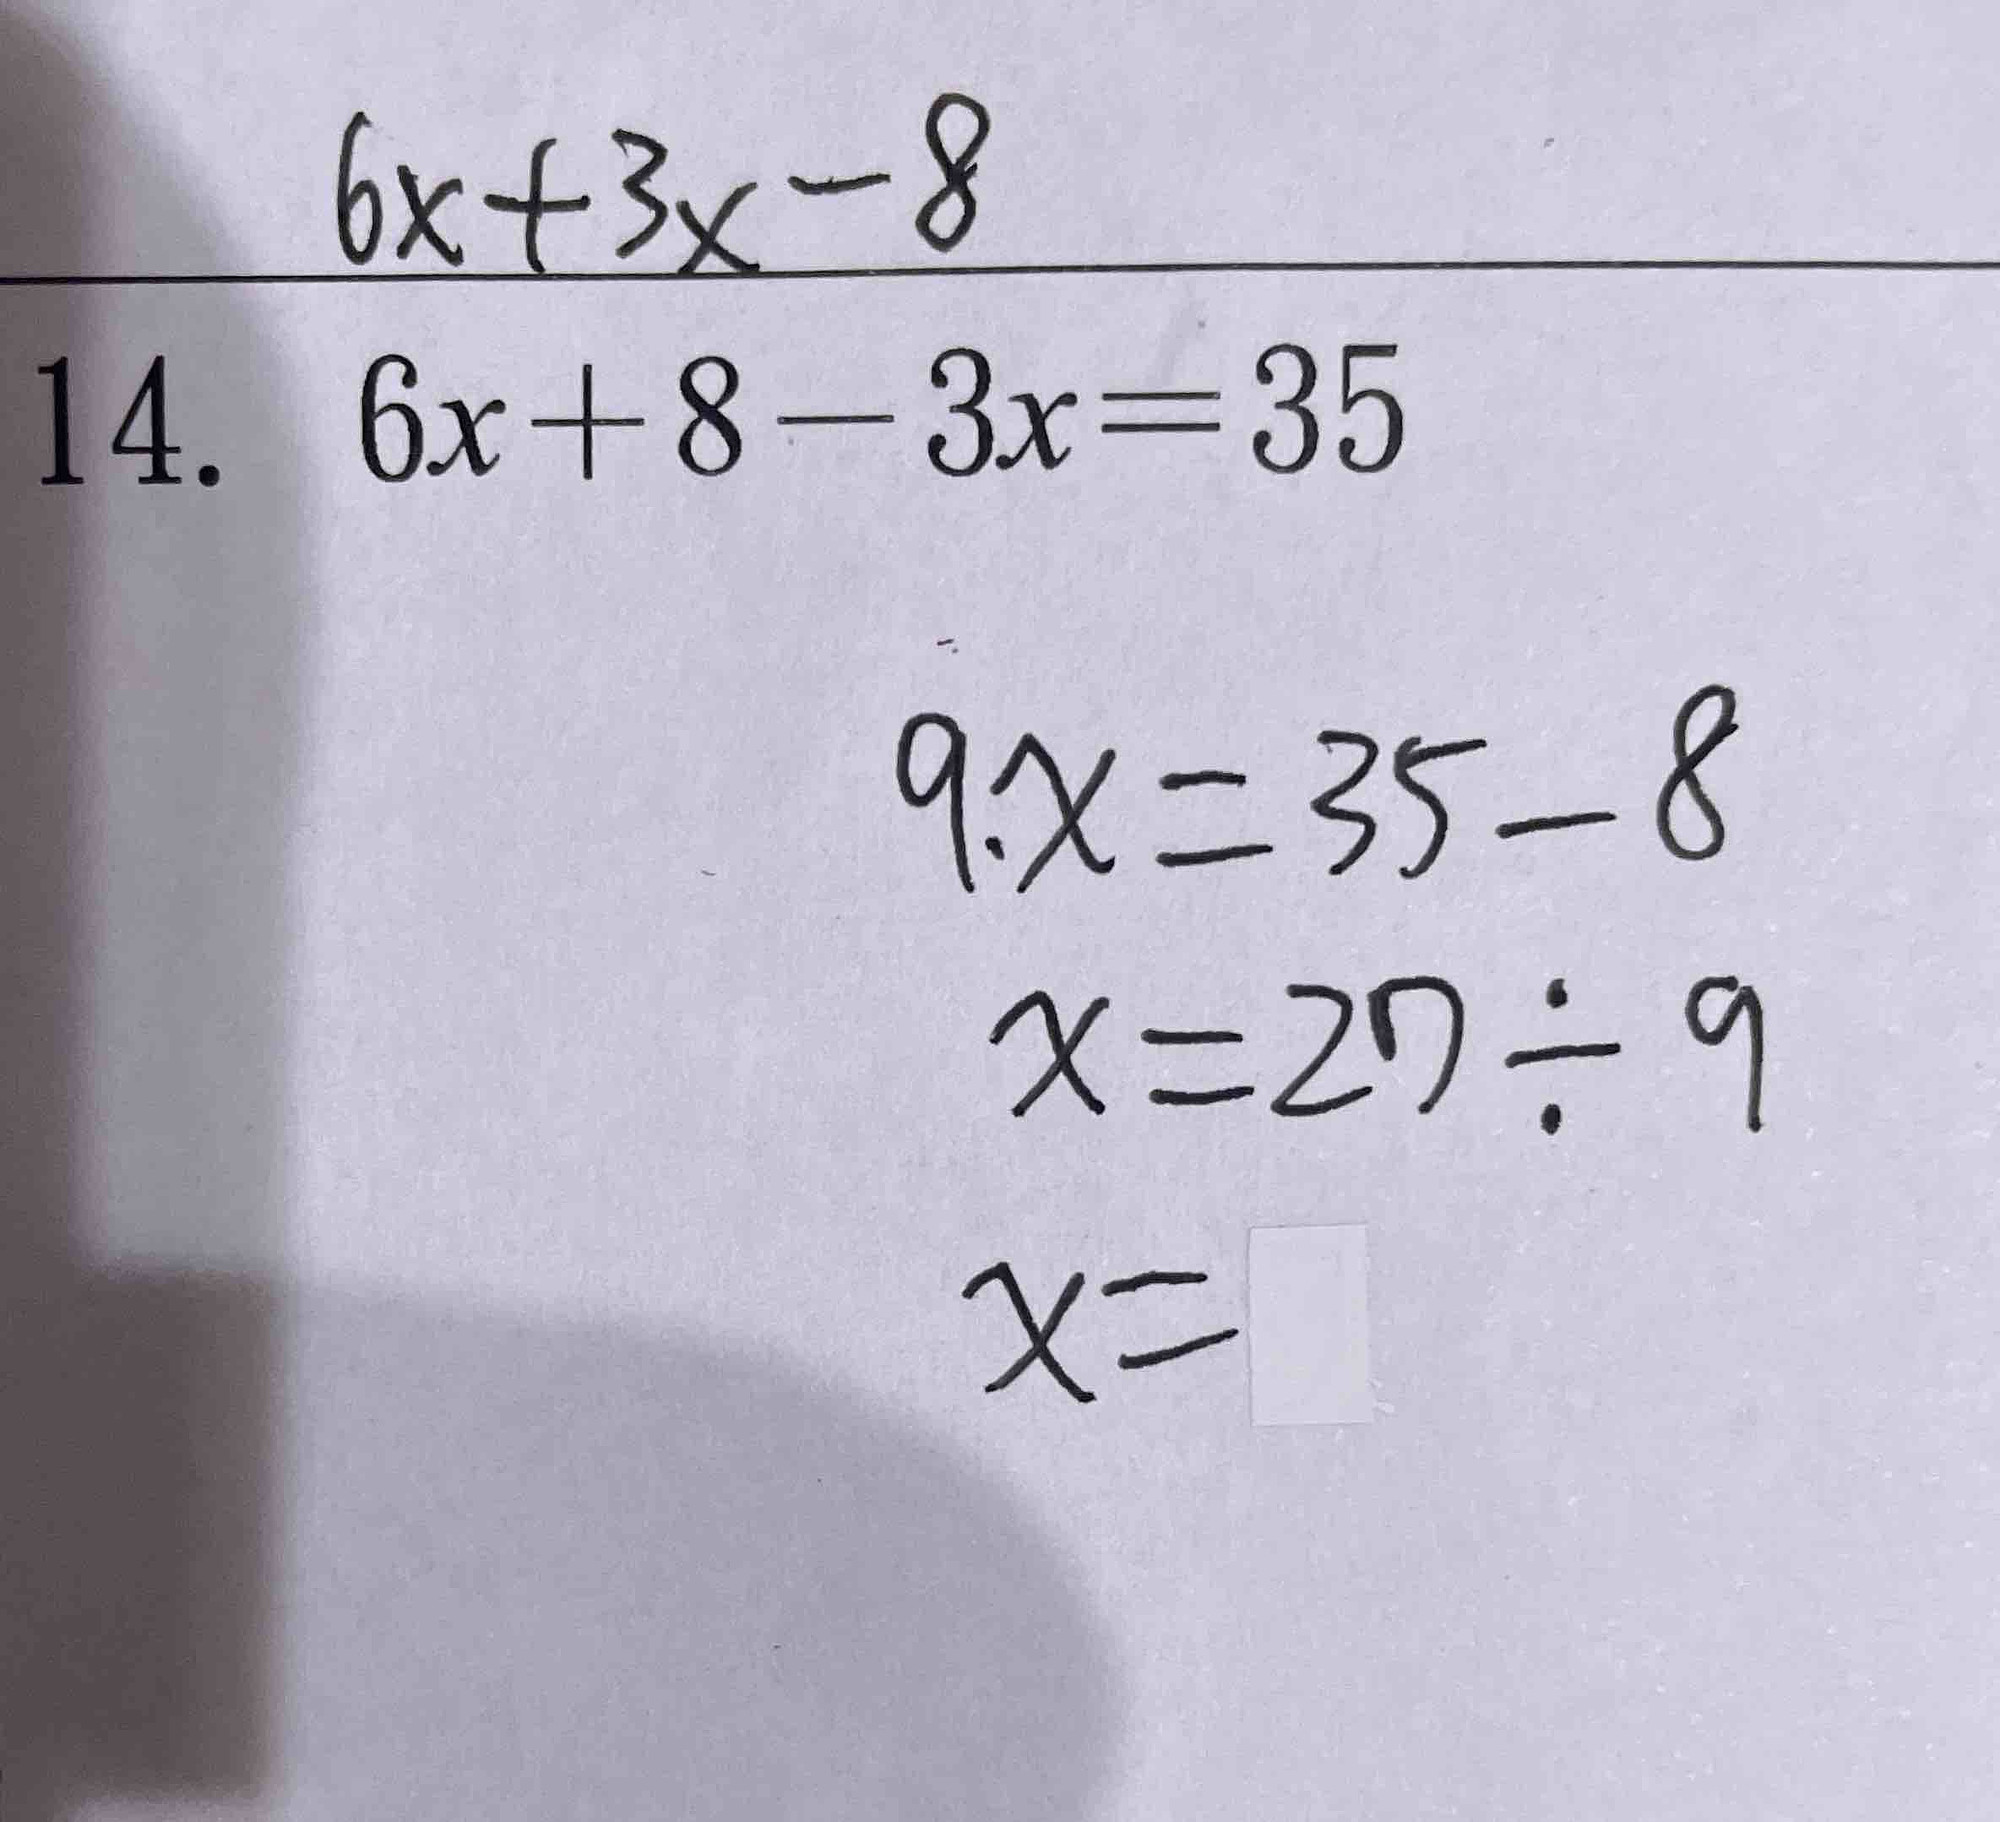 6x+3x-8
14. 6x+8-3x=35
9.x=35-8
x=27÷9
x=